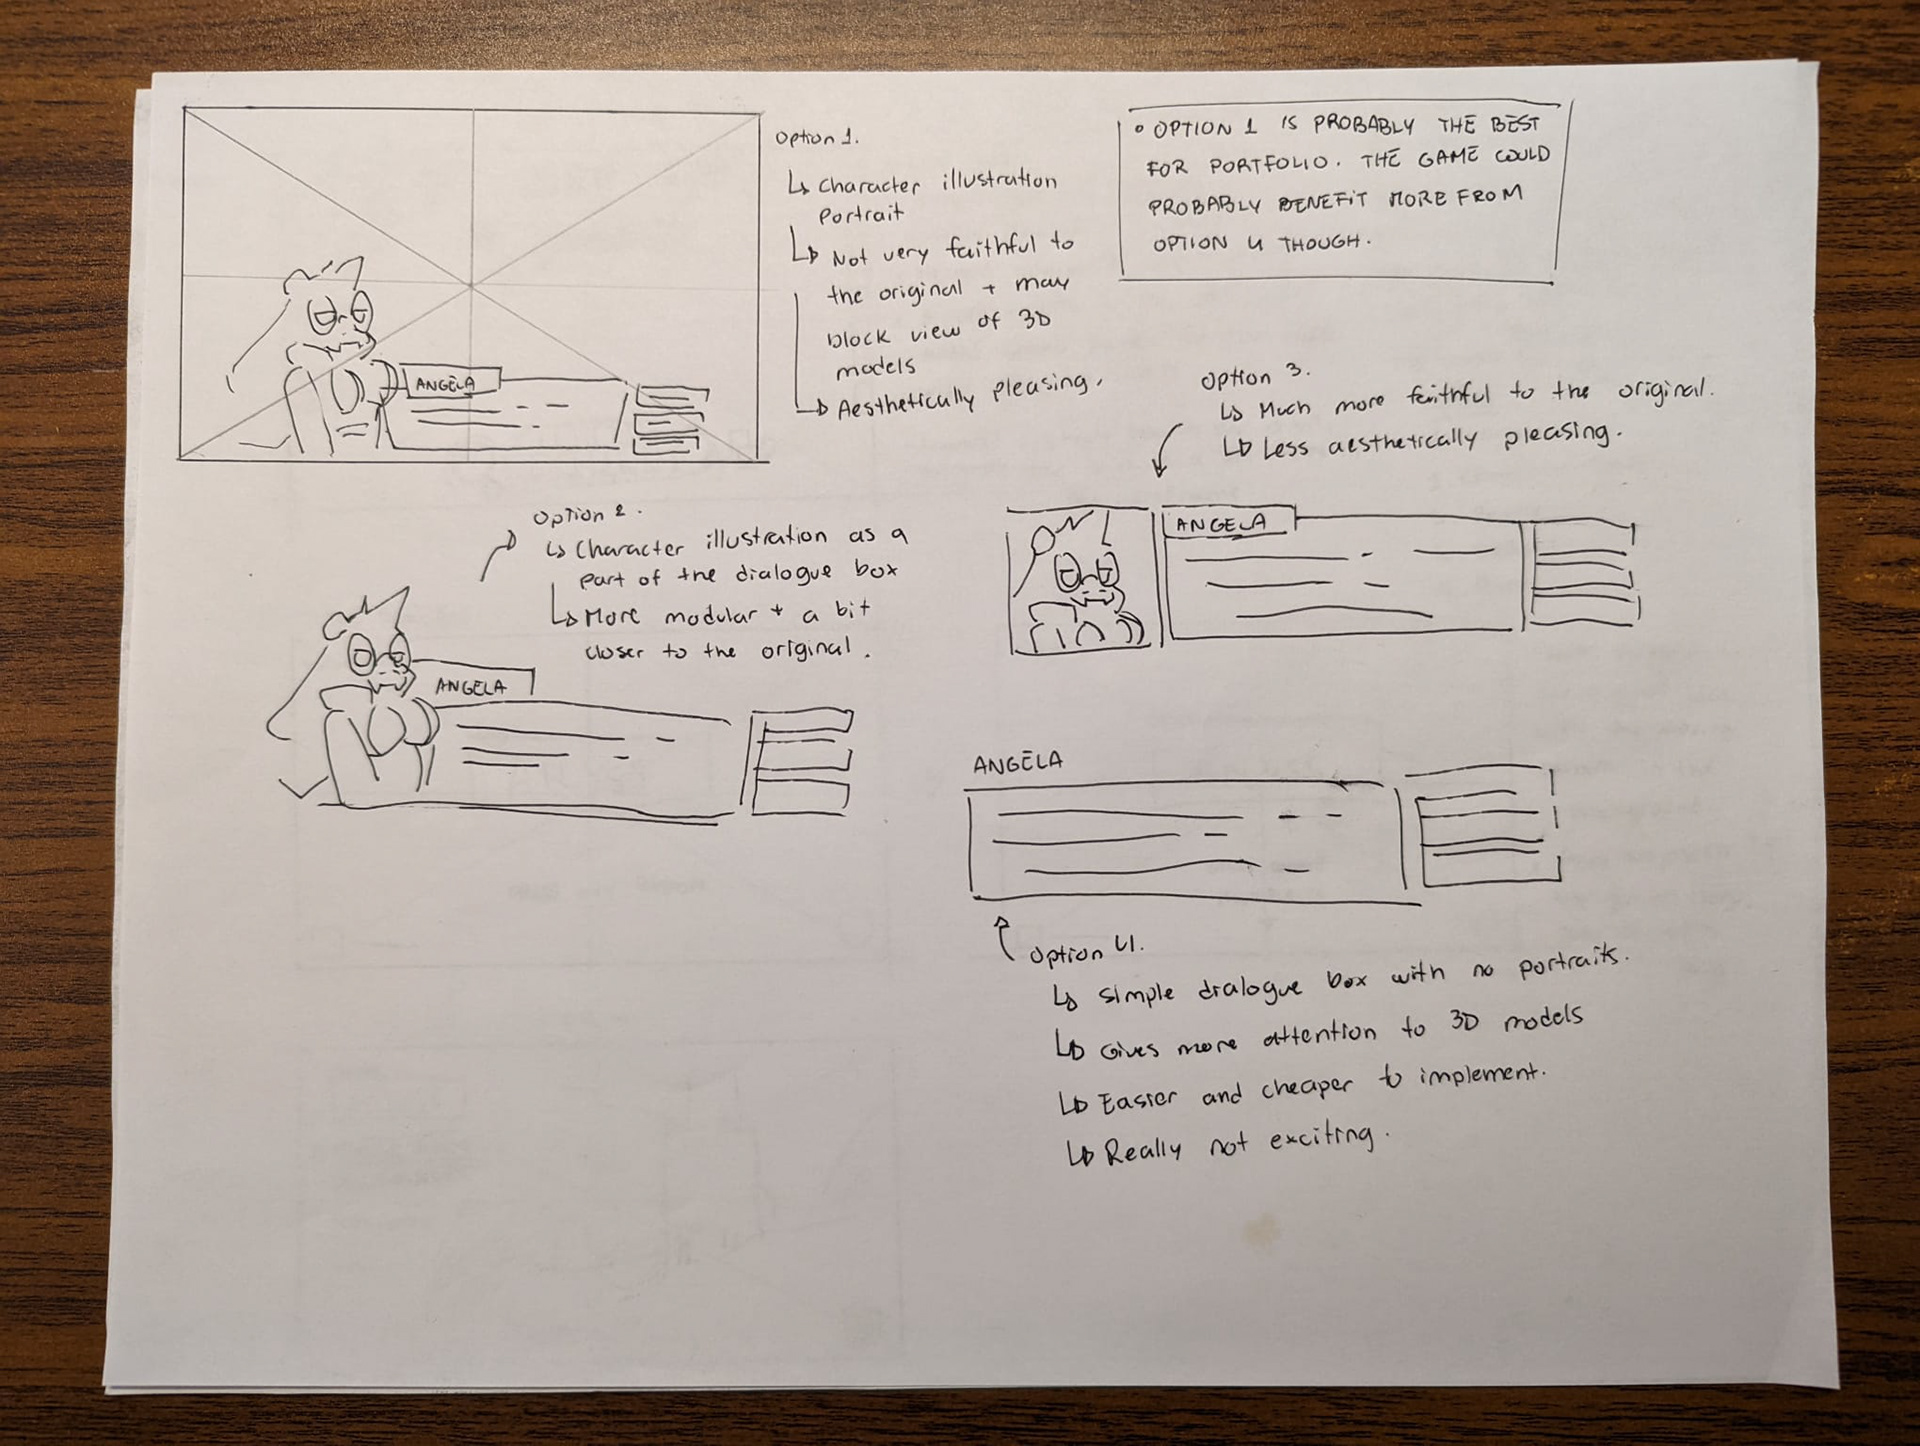 Option 1.
↳ Character illustration
Portrait
↳ Not very faithful to
the original + may
block view of 3D
models
↳ Aesthetically pleasing.
ANGELA
• OPTION 1 IS PROBABLY THE BEST
FOR PORTFOLIO. THE GAME COULD
PROBABLY BENEFIT MORE FROM
OPTION 4 THOUGH.
Option 2.
↳ Character illustration as a
part of the dialogue box
↳ More modular + a bit
closer to the original.
ANGELA
Option 3.
↳ Much more faithful to the original.
↳ Less aesthetically pleasing.
ANGELA
ANGELA
Option 4.
↳ Simple dialogue box with no portraits.
↳ Gives more attention to 3D models
↳ Easier and cheaper to implement.
↳ Really not exciting.